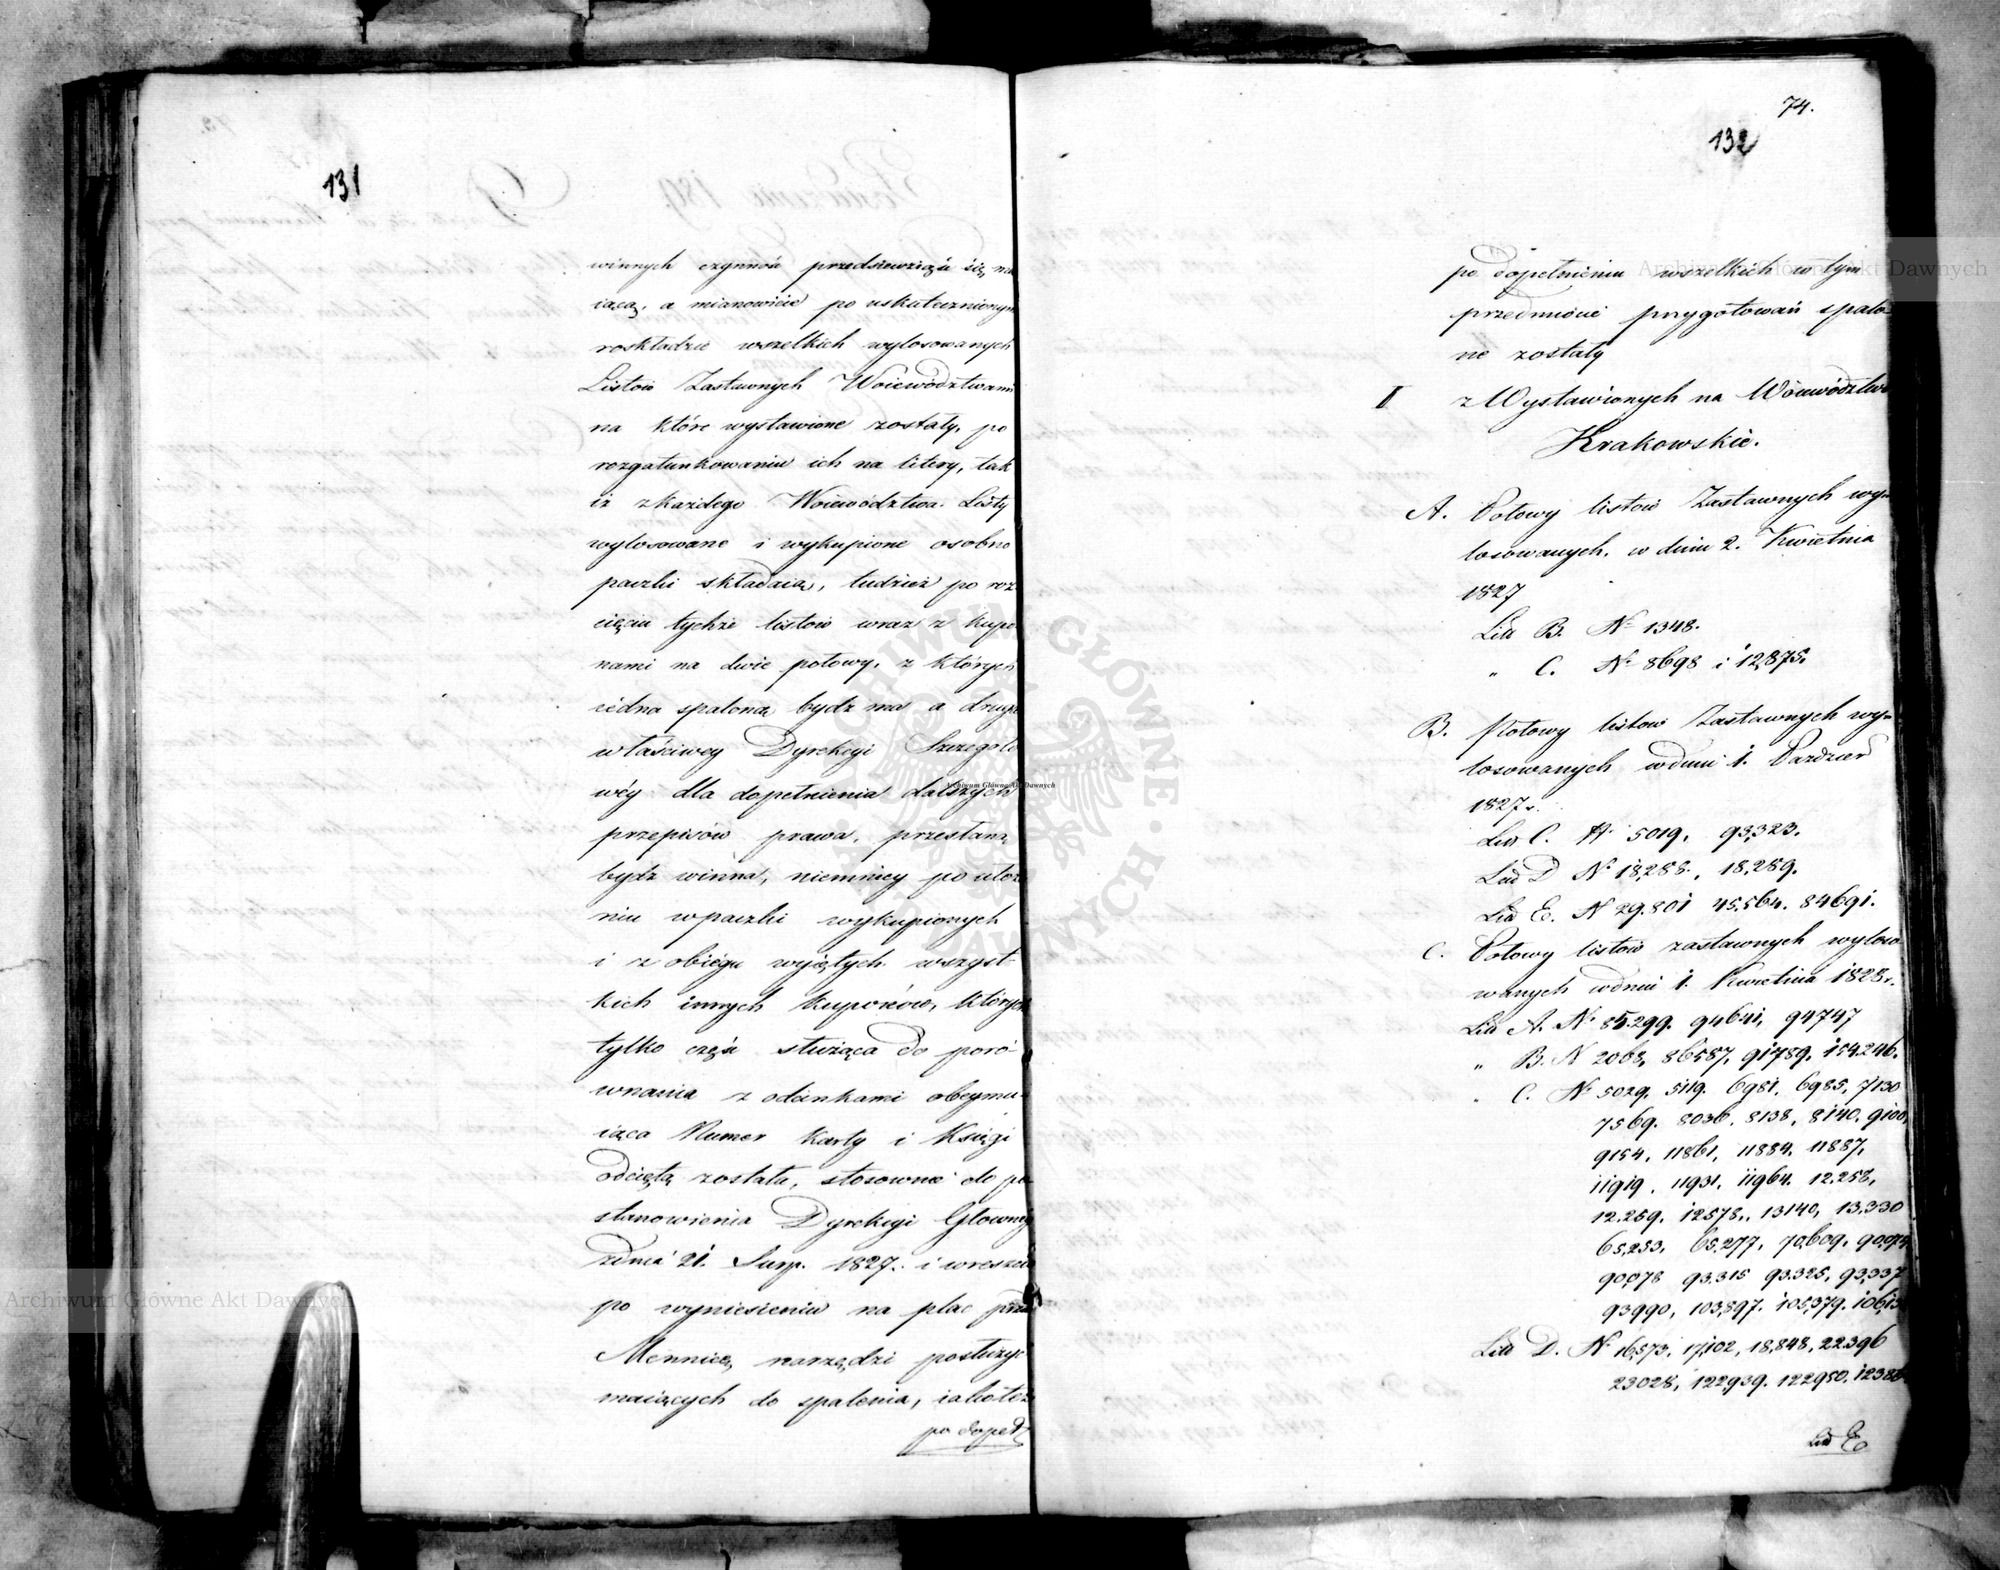 131
winnych czynność przedsiewziąść się ma
iącą, a mianowicie po uskutecznionym
roskładzie wszelkich wylosowanych
Listow Zastawnych Woiewództwami
na które wystawione zostały, po
rozgatunkowaniu ich na litery, tak
iż z każdego Woiewództwa Listy
wylosowane i wykupione osobne
paczki składaią, tudzież po roz
cięciu tychże listów wraz z kupo
nami na dwie połowy, z których
iedna spaloną bydź ma a druga
właściwey Dyrekcyi Szczegóło
wéy dla dopełnienia dalszych
przepisów prawa, przesłaną
bydź winna, niemniey po ułoże
niu w paczki wykupionych
i z obiegu wyiętych wszyst-
kich innych kuponów, których
tylko część służąca do poró-
wnania z odcinkami obeymu-
iąca Numer Karty i Księgi
odciętą została, stosownie do po
stanowienia Dyrekcyi Głowney
z dnia 21. Sierp. 1827. i wreszcie
po wyniesieniu na plac przed
Mennicę narzędzi posłużyć
maiących do spalenia, iako też
po dopeł
74.
132
po dopełnieniu wszelkich w tym
przedmiocie przygotowań spalo
ne zostały
II z Wystawionych na Woiewództwo
Krakowskie.
A. Połowy listów Zastawnych wy-
losowanych, w dniu 2. Kwietnia
1827
Lit B. No 1348.
„ C. No 8698 i 12,875.
B. Połowy listów Zastawnych wy-
losowanych w dniu 1. Paździer
1827 r.
Lit C. No 5019, 93,323.
Lit D No 18,288., 18,289.
Lit E. No 29.801 45.564. 84691.
C. Połowy listów zastawnych wyloso-
wanych w dniu 1. Kwietnia 1828 r.
Lit A. No 85.299. 94641, 94747
„ B. N 2068, 86587, 91789, 154.246.
„ C. No 5029, 5119. 6981, 6985, 7130
7569. 8036, 8138, 8140, 9100,
9154, 11861, 11884, 11887,
11919, 11931, 11964. 12.258,
12.259, 12578., 13140, 13,330
65,253, 65,277, 70,609, 90,074
90,078 93.315 93.325, 93,337
93990, 103,897. 105,379. 106,15
Litt D. No 16,573, 17,102, 18,848, 22.396
23028, 122,939. 122950. 12386
Lit E